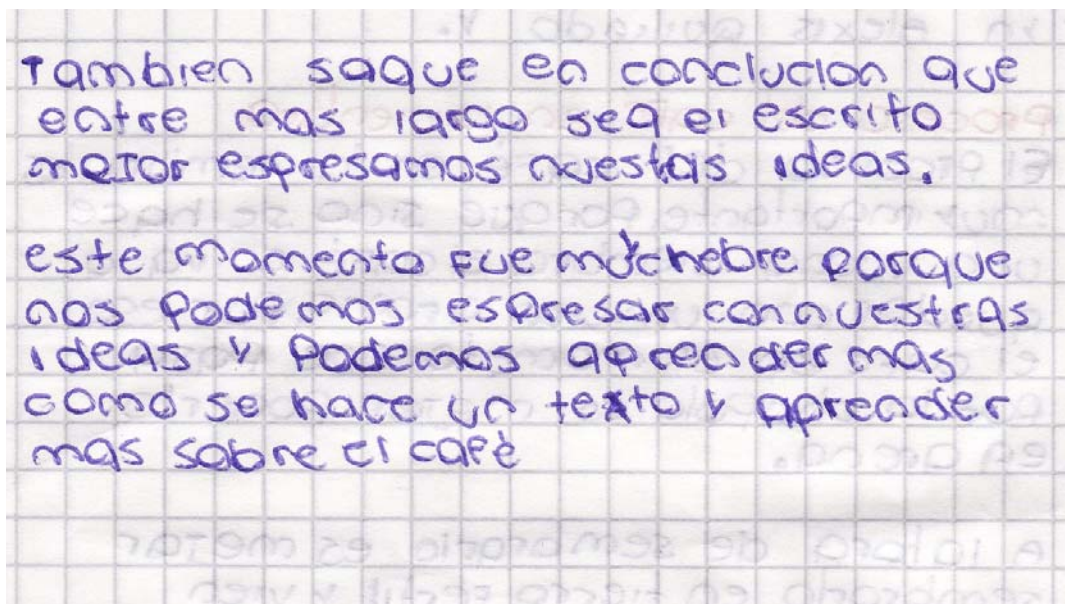 Tambien saque en conclucion que
entre mas largo sea el escrito
mejor espresamos nuestas ideas.
este momento fue muy chebre porque
nos podemos espresar con nuestras
ideas y podemos aprender mas
como se hace un texto y aprender
mas sobre el café